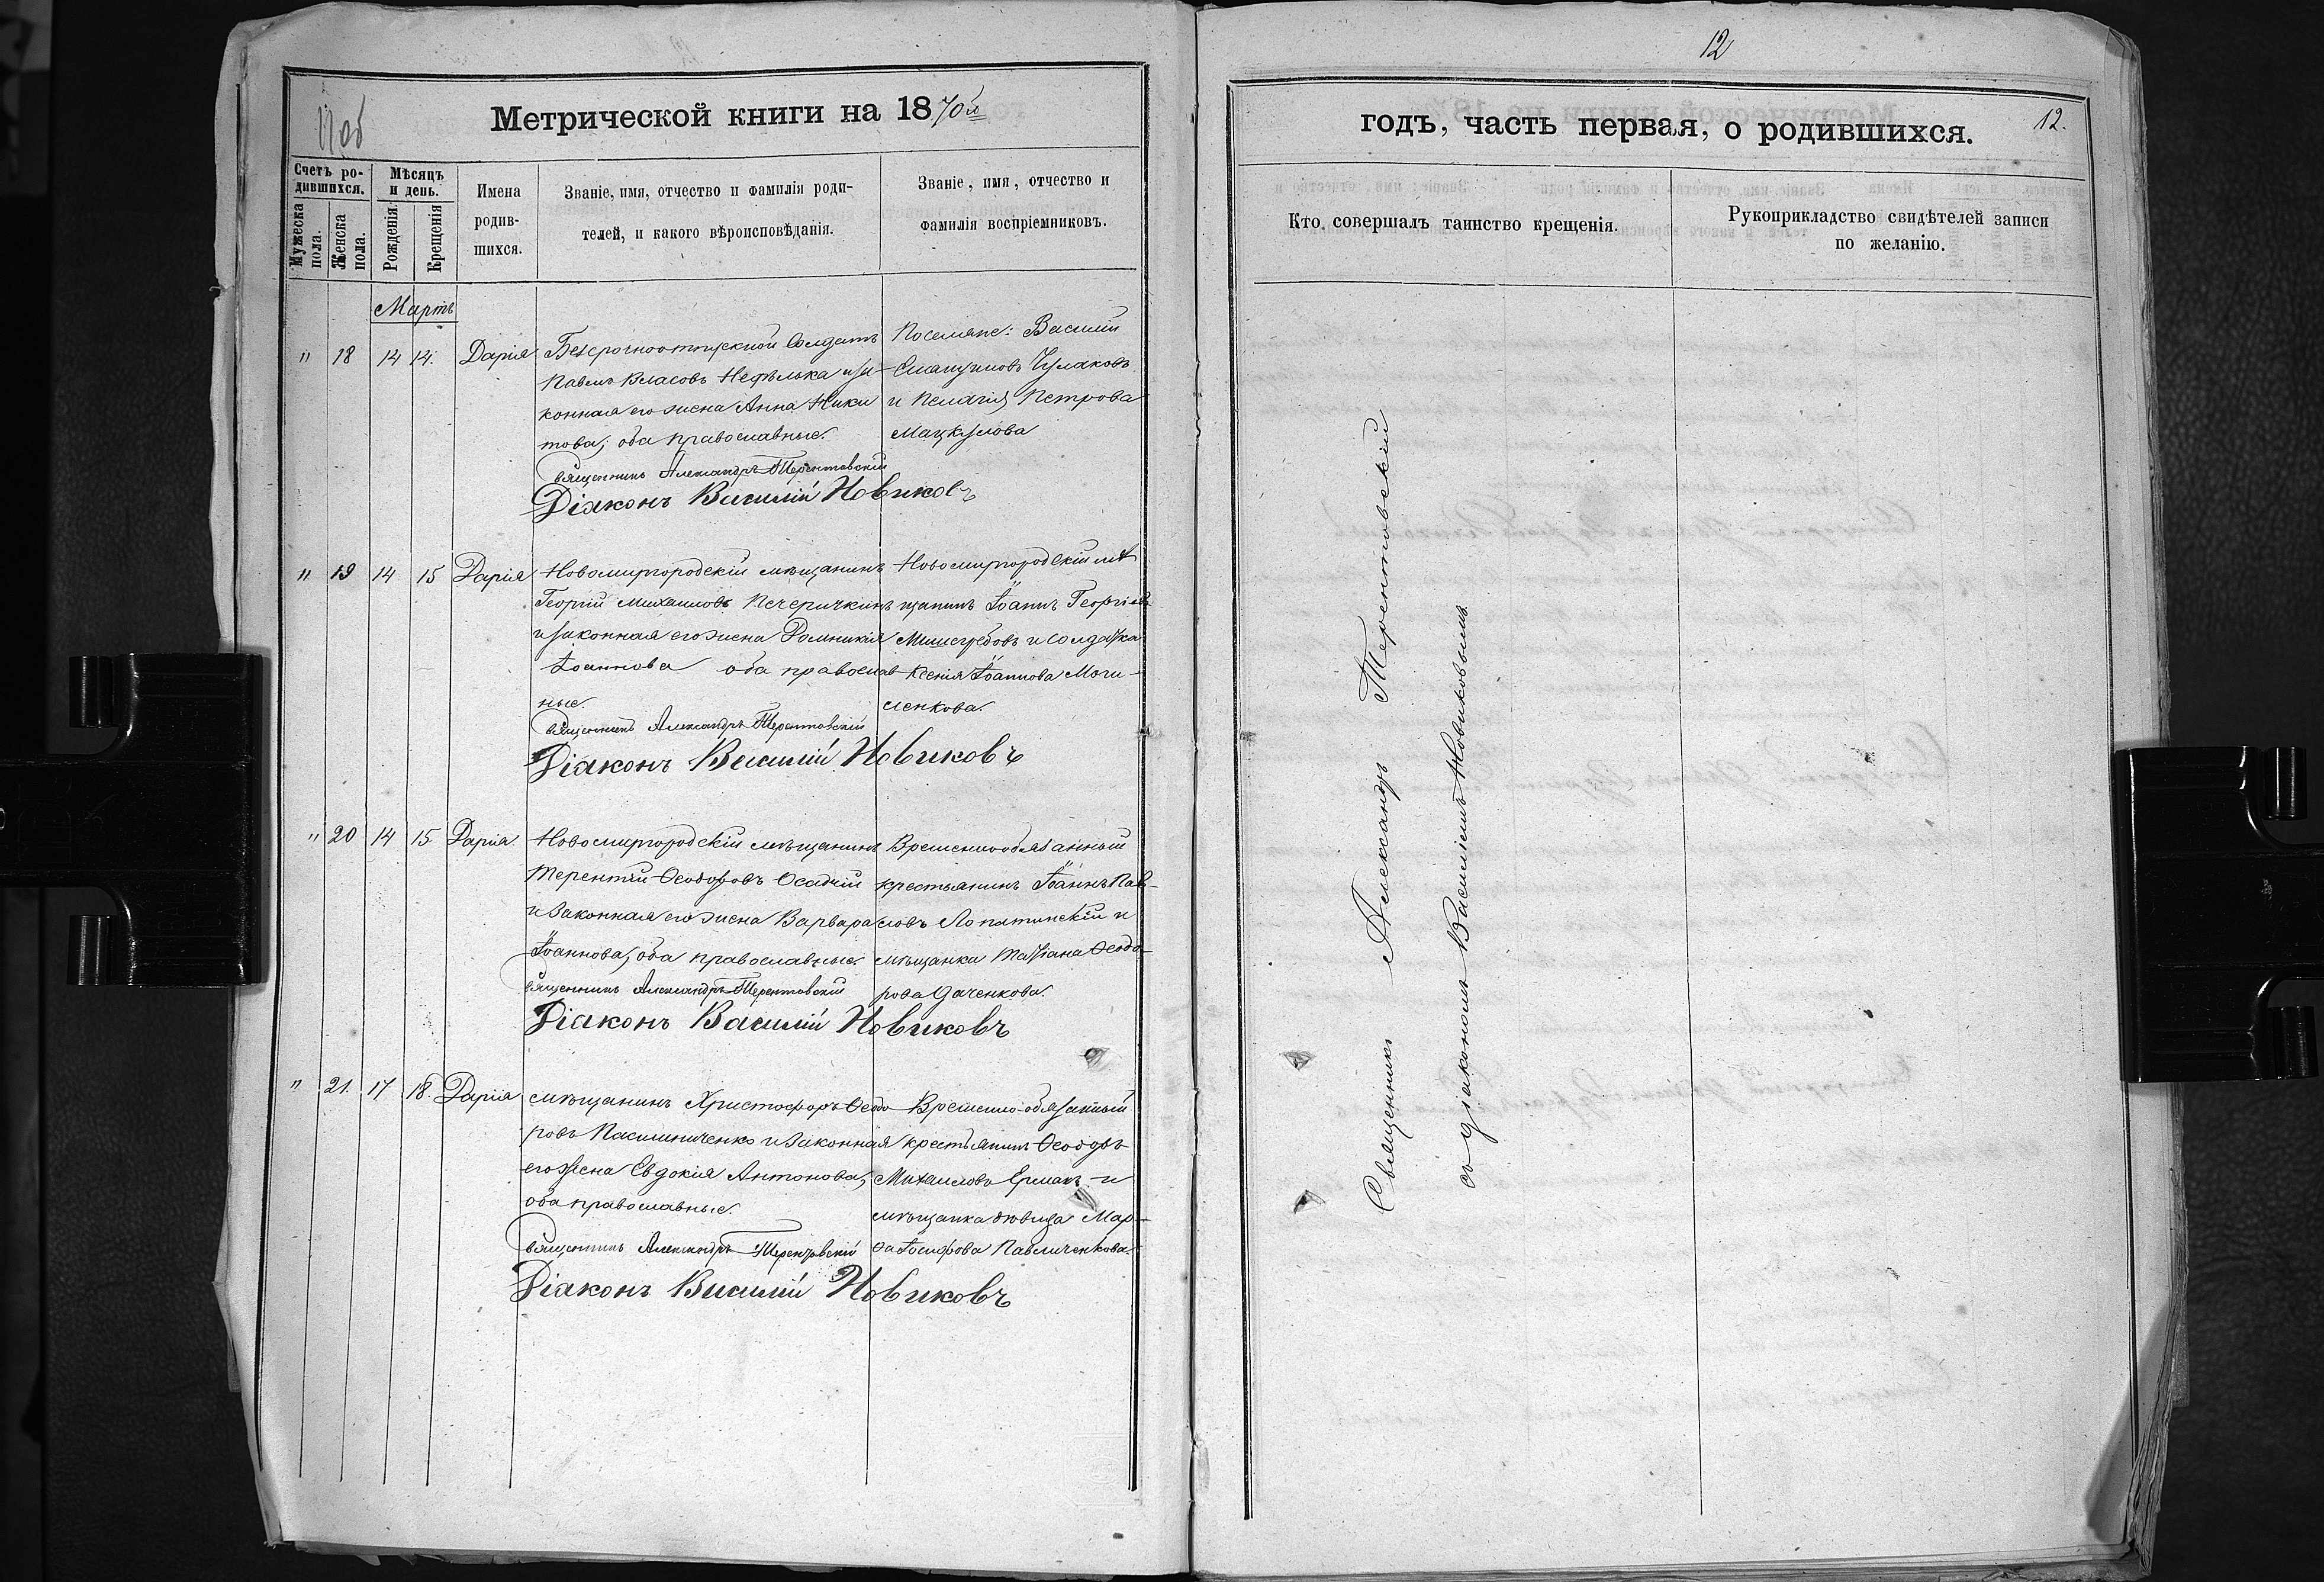 11об
Метрической книги на 1870й
Счетъ родившихся.
Мужеска пола.
Женска пола.
Мѣсяцъ и день.
Рожденія.
Крещенія
Имена родившихся.
Званіе, имя, отчество и фамилія родителей, и какого вѣроисповѣданія.
Званіе, имя, отчество и фамилія воспріемниковъ.
Мартъ
" 18 14 14. Дарія
Безсрочноотпускной Солдатъ
Павелъ Власовъ Нефѣлька и за-
конная его жена Анна Ники
това; оба православные.
Священникъ Александръ Терентовскій
Діаконъ Василій Новиковъ
Поселяне: Василій
Чулаковъ
и Пелагія Петрова
Мацкулова
" 19 14 15 Дарія
Новомиргородскій мѣщанинъ
Георгій Михаиловъ Печеричкинъ
и законная его жена Домникія
Іоаннова оба православ
ные.
Священникъ Александръ Терентовскій
Діаконъ Василій Новиковъ
Новомиргородскій мѣ
щанинъ Іоаннъ Георгіевъ
и солдатка
Ксенія Іоаннова Моги-
ленкова.
" 20 14 15 Дарія
Новомиргородскій мѣщанинъ
Терентій Ѳеодоровъ Осадчій
и законная его жена Варвара
Іоаннова, оба православные.
Священникъ Александръ Терентовскій
Діаконъ Василій Новиковъ
Временнообязанный
крестьянинъ Іоаннъ Пав-
ловъ Лопатинскій и
мѣщанка Татіана Ѳеодо-
рова Даченкова.
" 21. 17 18. Дарія
мѣщанинъ Христофоръ Ѳеодо
ровъ Пасишниченко и законная
его жена Евдокія Антонова,
оба православные.
Священникъ Александръ Терентовскій
Діаконъ Василій Новиковъ
Временно-обязанный
крестьянинъ Ѳеодоръ
Михаиловъ Ермакъ и
мѣщанка дѣвица Мар-
ѳа Іосифова Павличенкова.
12
годъ, часть первая, о родившихся.
12.
Кто совершалъ таинство крещенія.
Рукоприкладство свидѣтелей записи по желанію.
Священникъ Александръ Терентовскій
съ діакономъ Василіемъ Новиковымъ.